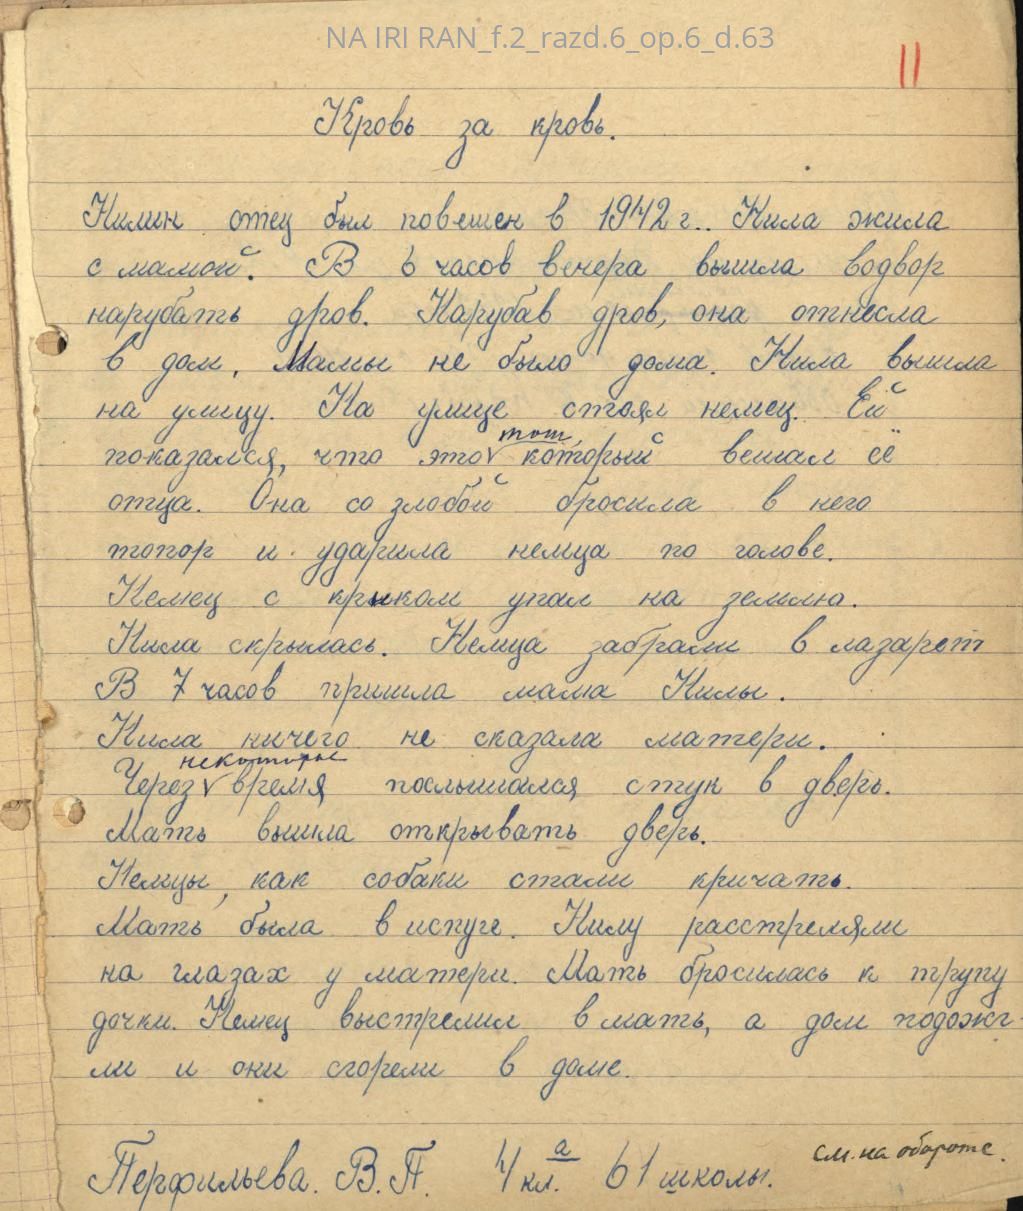 NA IRI RAN_f.2_razd.6_op.6_d.63
11
Кровь за кровь.
Нилин отец был повешен в 1942 г.. Нила жила
с мамой. В 6 часов вечера вышла водвор
нарубать дров. Нарубав дров, она отнесла
в дом. Мамы не было дома. Нила вышла
на улицу. На улице стоял немец. Ей
показался, что это тот, который вешал её
отца. Она со злобой бросила в него
топор и ударила немца по голове.
Немец с криком упал на землю.
Нила скрылась. Немца забрали в лазарет
В 7 часов пришла мама Нилы.
Нила ничего не сказала матери.
Через некоторые время послышался стук в дверь.
Мать вышла открывать дверь.
Немцы, как собаки стали кричать.
Мать была в испуге. Нилу расстреляли
на глазах у матери. Мать бросилась к трупу
дочки. Немец выстрелил в мать, а дом подожг-
ли и они сгорели в доме.
Перфильева. В.П. 4 кл. а 61 школы.
см. на обороте.